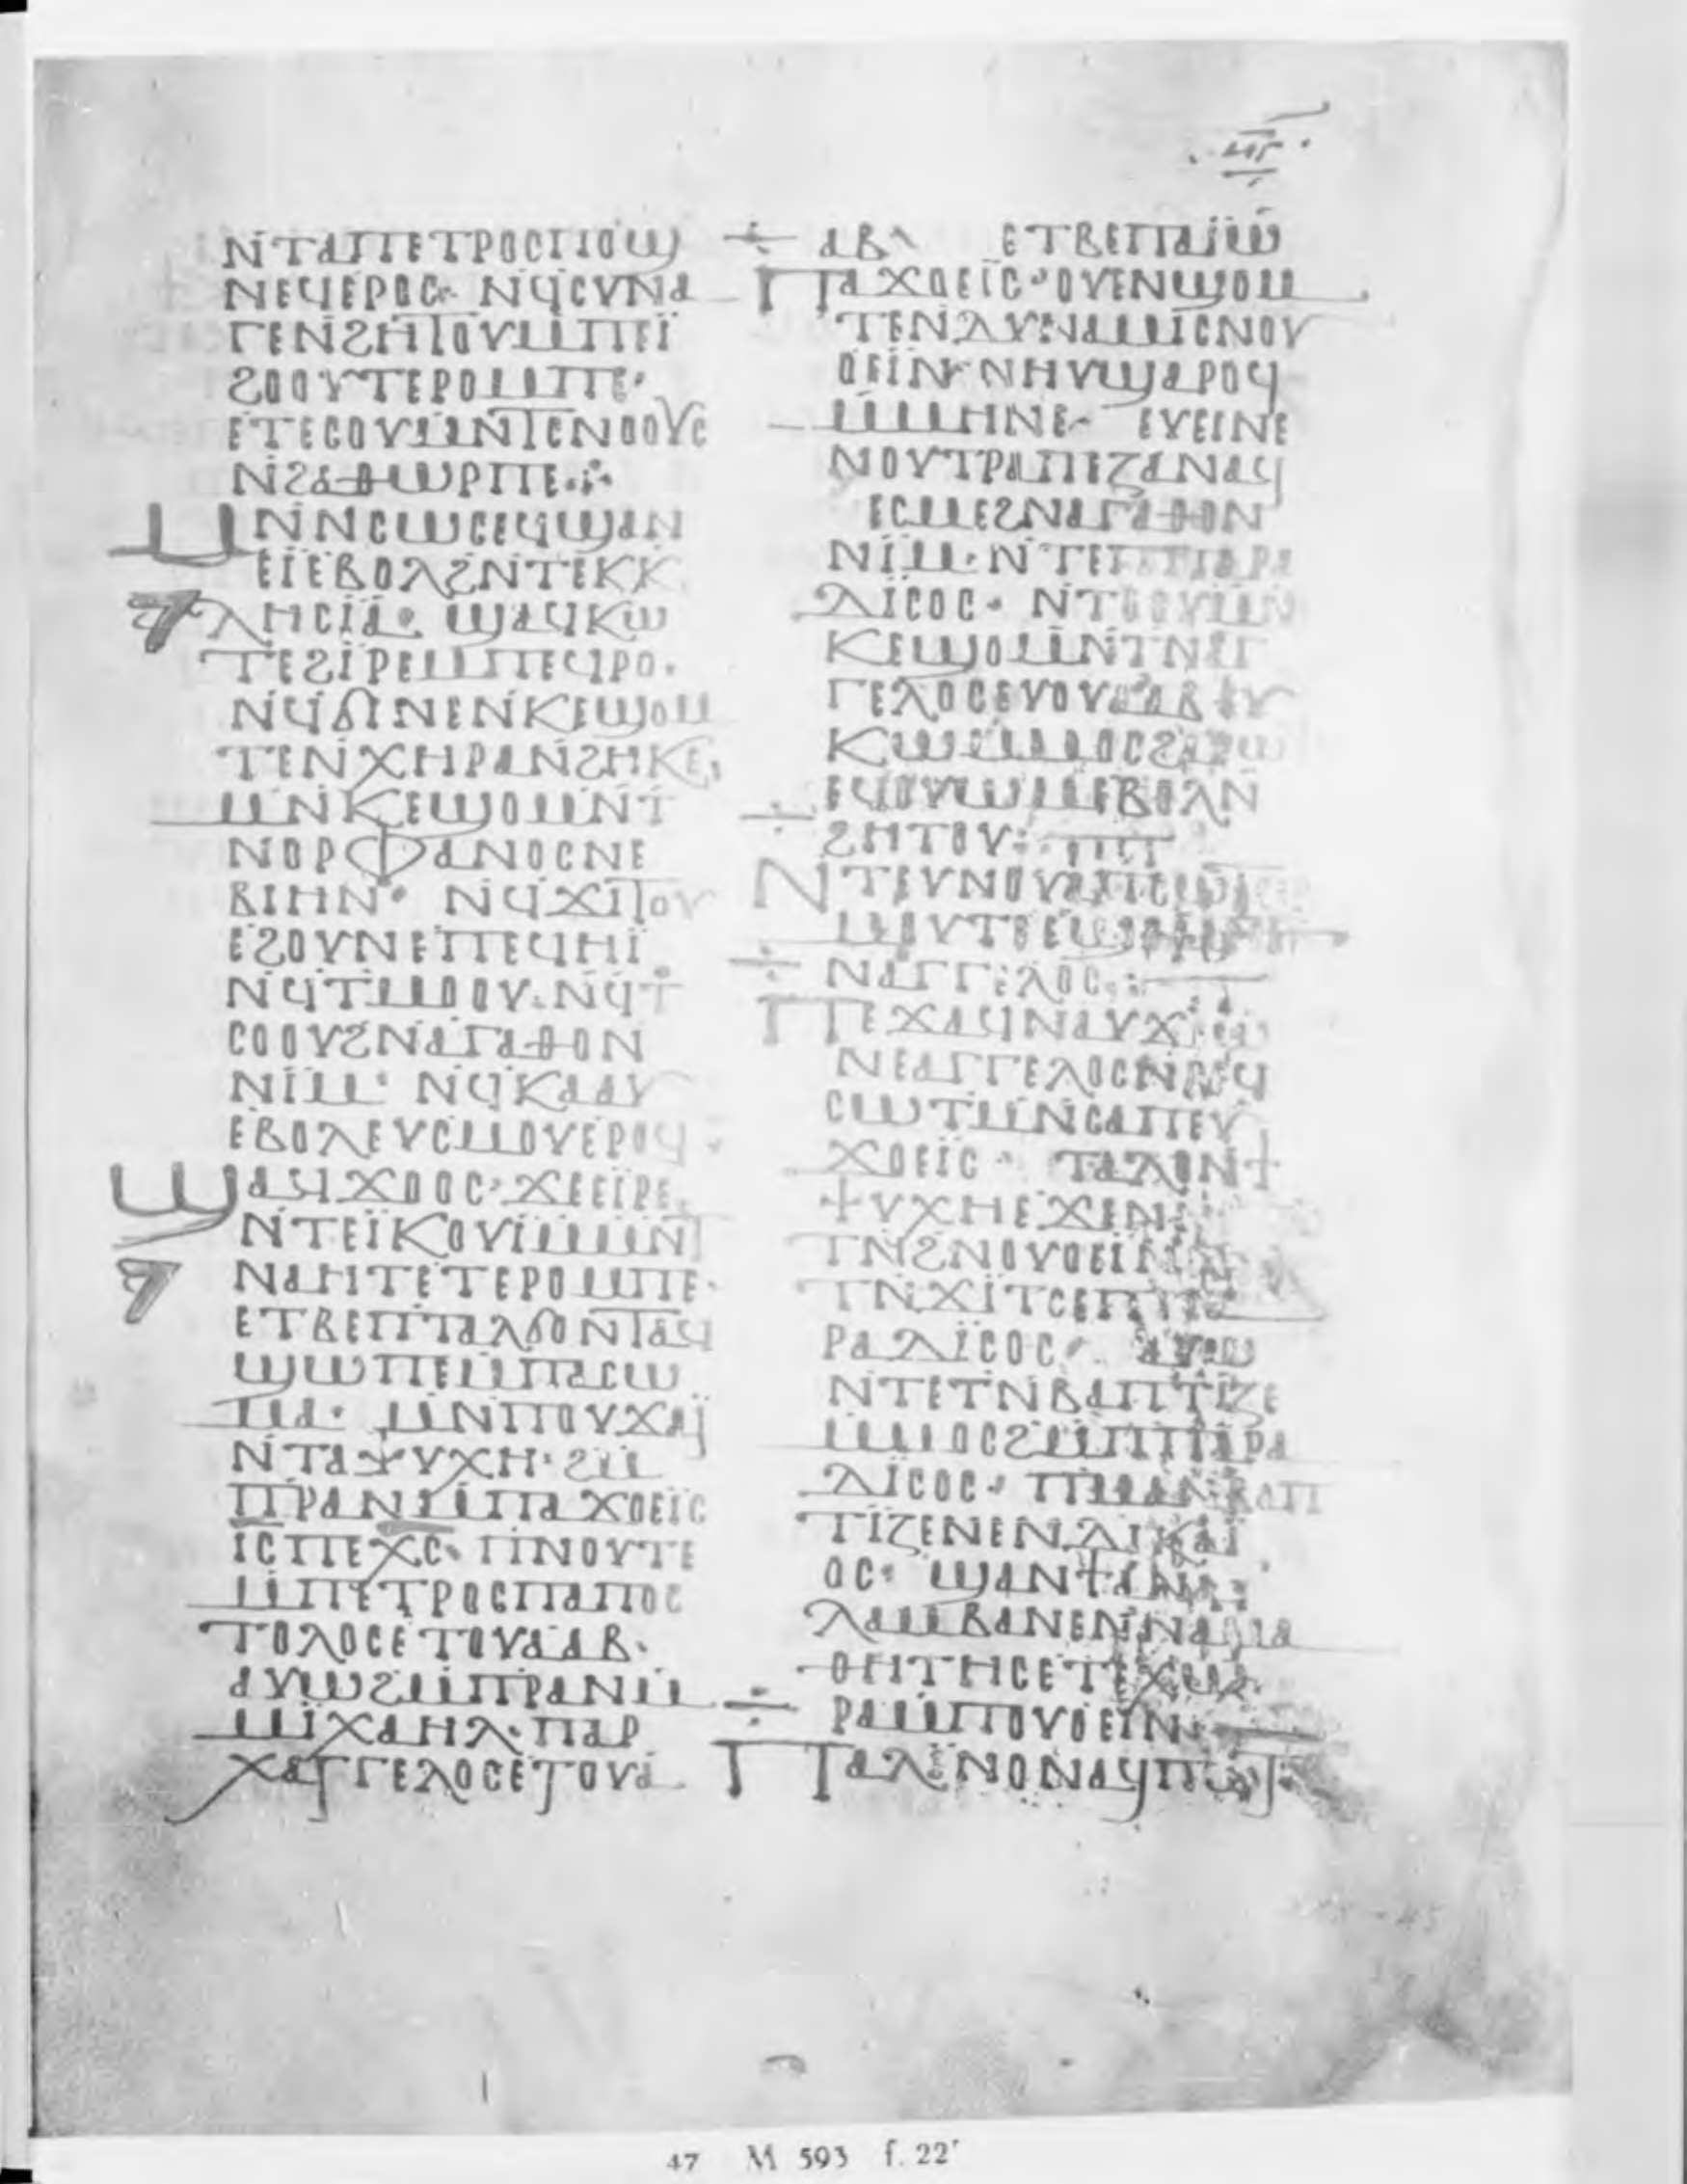 ⲙⲅ
ⲛⲧⲁⲡⲉⲧⲣⲟⲥⲡⲱϣ
ⲛⲉϥⲉⲣⲟⲥ· ⲛϥⲥⲩⲛⲁ
ⲅⲉⲛϩⲏⲧⲟⲩⲙⲡⲉⲓ̈
ϩⲟⲟⲩⲧⲉⲣⲟⲙⲡⲉ·
ⲉⲧⲉⲥⲟⲩⲙⲛⲧⲥⲛⲟⲟⲩⲥ
ⲛϩⲁⲑⲱⲣⲡⲉ·
ⲙⲛⲛⲥⲱⲥⲉϥϣⲁⲛ
ⲉⲓⲉⲃⲟⲗϩⲛⲧⲉⲕⲕ
ⲗⲏⲥⲓⲁ· ϣⲁϥⲕⲱ
ⲧⲉϩⲓⲣⲉⲙⲡⲉϥⲣⲟ·
ⲛϥϭⲓⲛⲉⲛⲕⲉϣⲟⲙ
ⲧⲉⲛⲭⲏⲣⲁⲛϩⲏⲕⲉ·
ⲙⲛⲕⲉϣⲟⲙⲛⲧ
ⲛⲟⲣⲫⲁⲛⲟⲥⲛⲉ
ⲃⲓⲏⲛ· ⲛϥϫⲓⲧⲟⲩ
ⲉϩⲟⲩⲛⲉⲡⲉϥⲏⲓ
ⲛϥⲧⲙⲙⲟⲟⲩ·ⲛϥϯ
ⲥⲟⲟⲩϩⲛⲁⲅⲁⲑⲟⲛ
ⲛⲓⲙ· ⲛϥⲕⲁⲁⲩ
ⲉⲃⲟⲗⲉⲩⲥⲙⲟⲩⲉⲣⲟϥ
ϣⲁϥϫⲟⲟⲥ·ϫⲉⲉⲓⲣⲉ
ⲛⲧⲉⲓ̈ⲕⲟⲩⲓⲙⲙⲛⲧ
ⲛⲁⲏⲧⲉⲧⲉⲣⲟⲙⲡⲉ·
ⲉⲧⲃⲉⲡⲧⲁⲗϭⲟⲛⲧⲁϥ
ϣⲱⲡⲉⲙⲡⲁⲥⲱ
ⲙⲁ· ⲙⲛⲡⲟⲩϫⲁⲓ̈
ⲛⲧⲁⲯⲩⲭⲏ·ϩⲙ
ⲡⲣⲁⲛⲙⲡⲁϫⲟⲉⲓ̈ⲥ
ⲓⲥⲡⲉⲭⲥ· ⲡⲛⲟⲩⲧⲉ
ⲙⲡⲉⲧⲣⲟⲥⲡⲁⲡⲟⲥ
ⲧⲟⲗⲟⲥⲉⲧⲟⲩⲁⲁⲃ·
ⲁⲩⲱϩⲙⲡⲣⲁⲛⲙ
ⲙⲓⲭⲁⲏⲗ·ⲡⲁⲣ
ⲭⲁⲅⲅⲉⲗⲟⲥⲉⲧⲟⲩⲁ
ⲁⲃ ⲉⲧⲃⲉⲡⲁⲓ̈ⲱ
ⲡⲁϫⲟⲉⲓⲥ·ⲟⲩⲉⲛϣⲟⲙ
ⲧⲉⲛⲇⲩⲛⲁⲙⲓⲥⲛⲟⲩ
ⲟⲉⲓⲛ ⲛⲏⲩϣⲁⲣⲟϥ
ⲙⲙⲏⲛⲉ· ⲉⲩⲉⲓⲛⲉ
ⲛⲟⲩⲧⲣⲁⲡⲉⲍⲁⲛⲁϥ
ⲉⲥⲙⲉϩⲛⲁⲅⲁⲑⲟⲛ
ⲛⲓⲙ·ⲛⲧⲉⲡⲡⲁⲣⲁ
ⲇⲓⲥⲟⲥ· ⲛⲧⲉⲟⲩⲙⲛ
ⲕⲉϣⲟⲙⲛⲧⲛⲁⲅ
ⲅⲉⲗⲟⲥⲉⲩⲟⲩⲁⲁⲃ
ⲉϥⲟⲩⲱⲙⲉⲃⲟⲗⲛ
ϩⲏⲧⲟⲩ:
ⲛⲁⲅⲅⲉⲗⲟⲥ:
ⲡⲉϫⲁϥⲛⲁⲩϫⲉⲱ
ⲛⲉⲁⲅⲅⲉⲗⲟⲥ
ⲥⲱⲧⲙⲛⲥⲁⲡⲉⲩ
ϫⲟⲉⲓⲥ· ⲧⲁⲗⲟⲛϯ
ⲯⲩⲭⲏⲉϫⲉⲛ
ⲧⲛϩⲛⲟⲩⲟⲉⲓⲛ
ⲧⲛϫⲓⲧⲥⲉⲡⲡⲁ
ⲣⲁⲇⲓⲥⲟⲥ· ⲁⲩⲱ
ⲛⲧⲉⲧⲛⲃⲁⲡⲧⲓⲍⲉ
ⲙⲙⲟⲥϩⲙⲡⲡⲁⲣⲁ
ⲇⲓⲥⲟⲥ· ⲡⲙⲁⲛⲃⲁⲡ
ⲧⲓⲍⲉⲛⲉⲛⲇⲓⲕⲁⲓ
ⲟⲥ· ϣⲁⲛϯ
ⲗⲁⲙⲃⲁⲛⲉⲛⲛⲁⲙⲁ
ⲑⲏⲧⲏⲥⲉⲧⲉⲭⲱ
ⲣⲁⲙⲡⲟⲩⲟⲉⲓⲛ·
ⲡⲁⲗⲓⲛⲟⲛⲁϥⲡⲱⲧ
47 M 593 f. 22ʳ